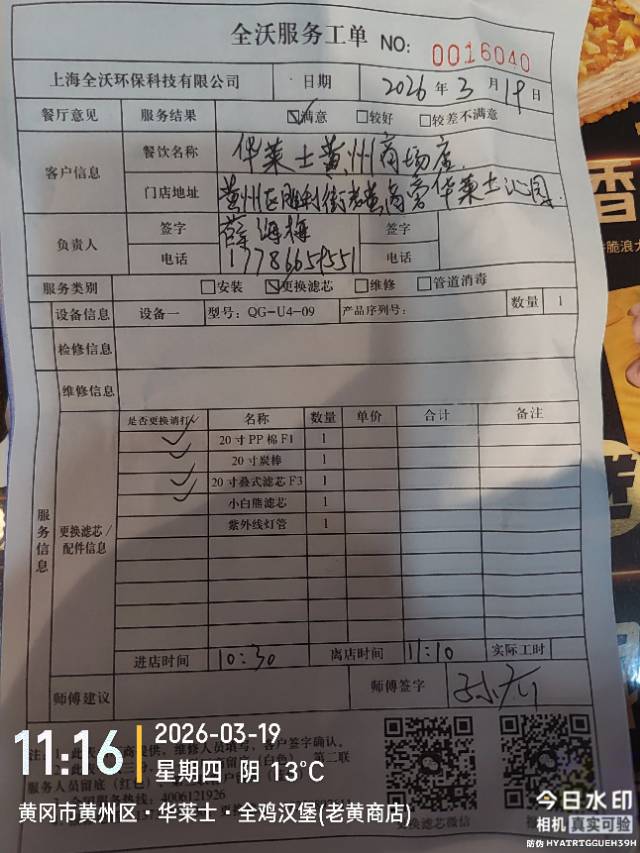 全沃服务工单 NO: 0016040
上海全沃环保科技有限公司 日期 2026年3月19日
餐厅意见 服务结果 ☑满意 □较好 □较差不满意
客户信息 餐饮名称 华莱士黄州商场店
门店地址 黄州区胜利街老黄商旁华莱士
负责人 签字 薛海梅 签字
电话 17786659551 电话
服务类别 □安装 ☑更换滤芯 □维修 □管道消毒
设备信息 设备一 型号: QG-U4-09 产品序列号: 数量 1
检修信息
维修信息
服务信息
更换滤芯/配件信息
是否更换请打✓ 名称 数量 单价 合计 备注
✓ 20寸PP棉F1 1
✓ 20寸炭棒 1
✓ 20寸叠式滤芯F3 1
✓ 小白熊滤芯 1
紫外线灯管 1
进店时间 10:30 离店时间 11:10 实际工时
师傅建议 师傅签字
维修人员填写,客户签字确认。
服务人员留底(红色)
全国服务热线: 4006121926
更换滤芯微信
11:16 2026-03-19
星期四 阴 13°C
黄冈市黄州区·华莱士·全鸡汉堡(老黄商店)
今日水印
相机 真实可验
防伪 HYATRTGGUEH39H
香
脆浪大